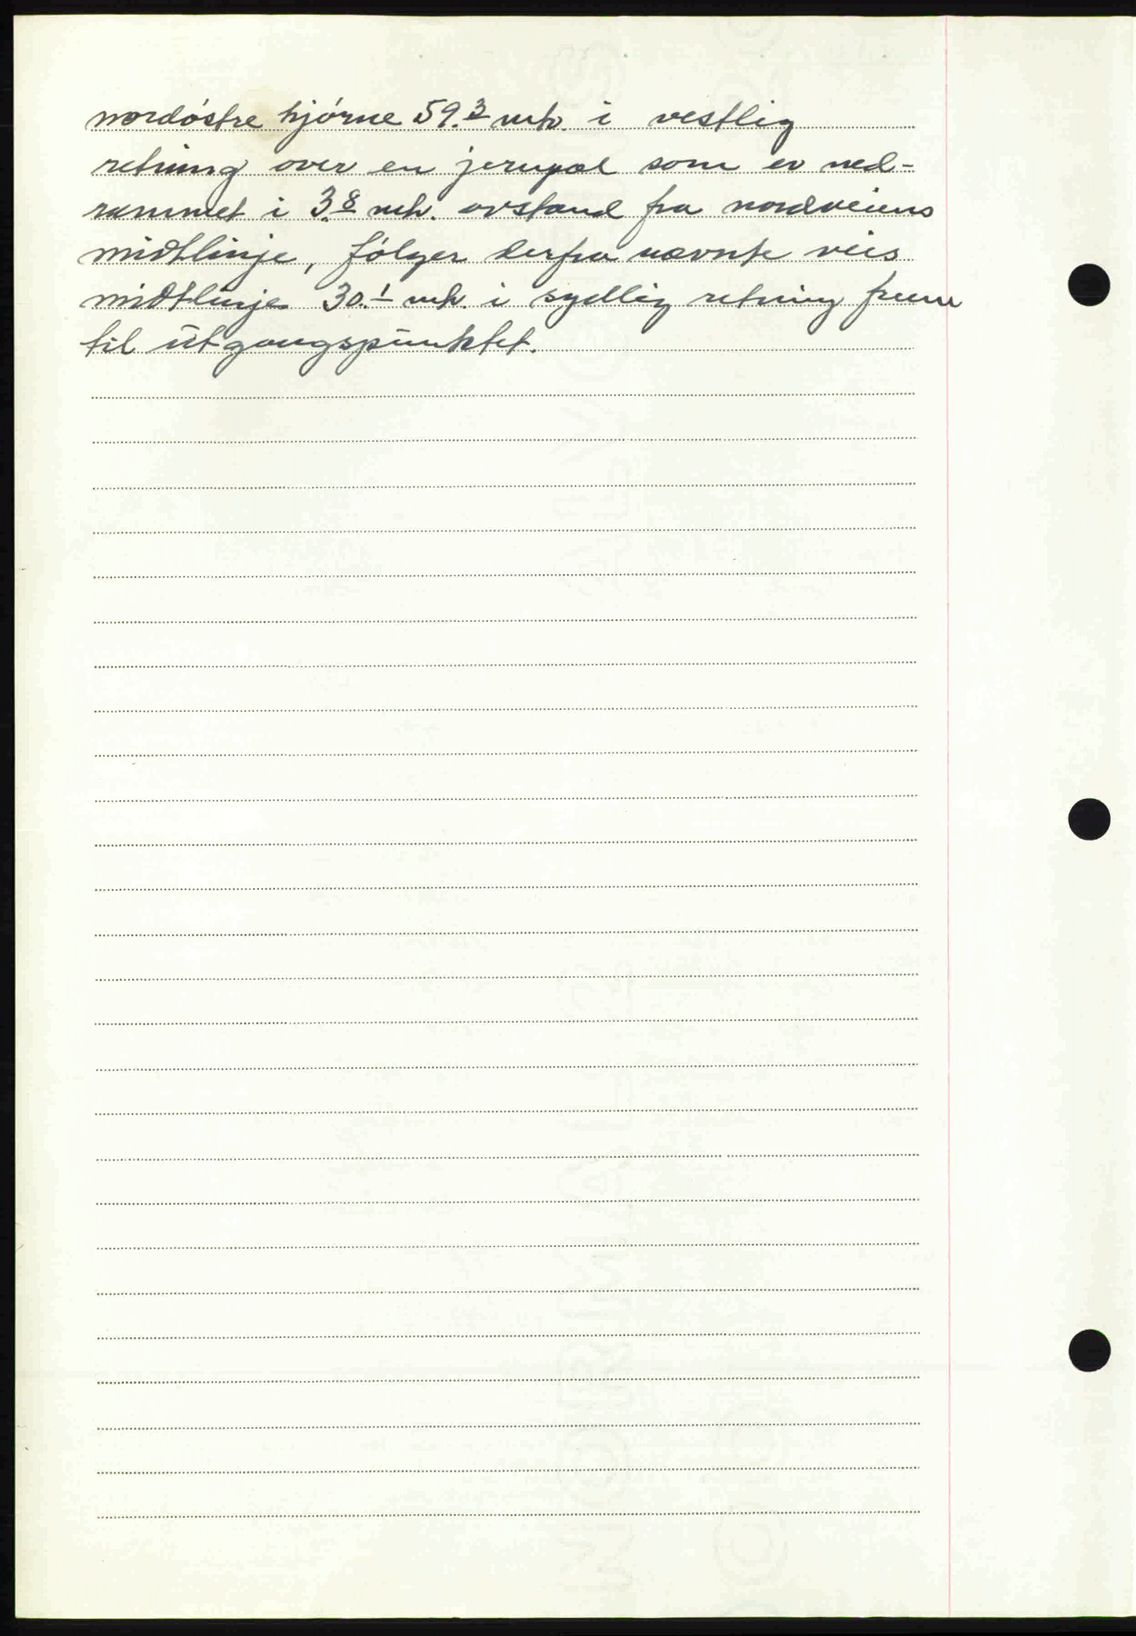 nordöstre hjörne 59.3 mtr. i vestlig
retning over en jernpæl som er ned-
rammet i 3.8 mtr. avstand fra nordveiens
midtlinje, fölger derfra nævnte veis
midtlinje 30.1 mtr. i sydlig retning frem
til utgangspunktet.